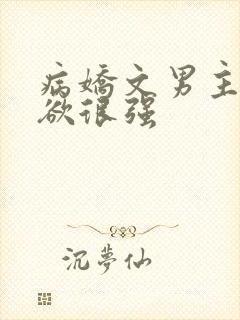 病嬌文男主
欲很强
沉夢仙